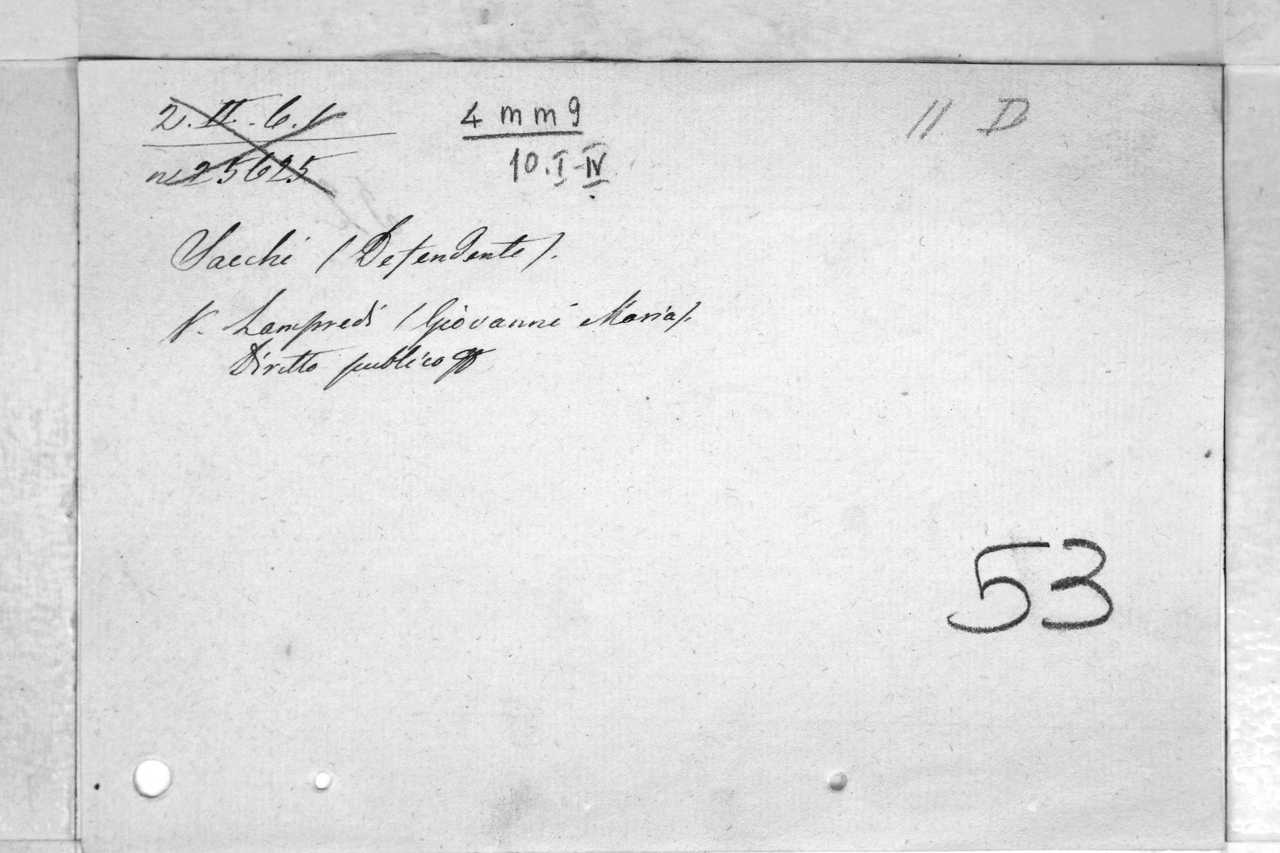 2.II.6.1
n. 25625
4 m m 9
10.I-IV
11 D
Sacchi (Defendente).
V. Lampredi (Giovanni Maria).
Diritto publico
53